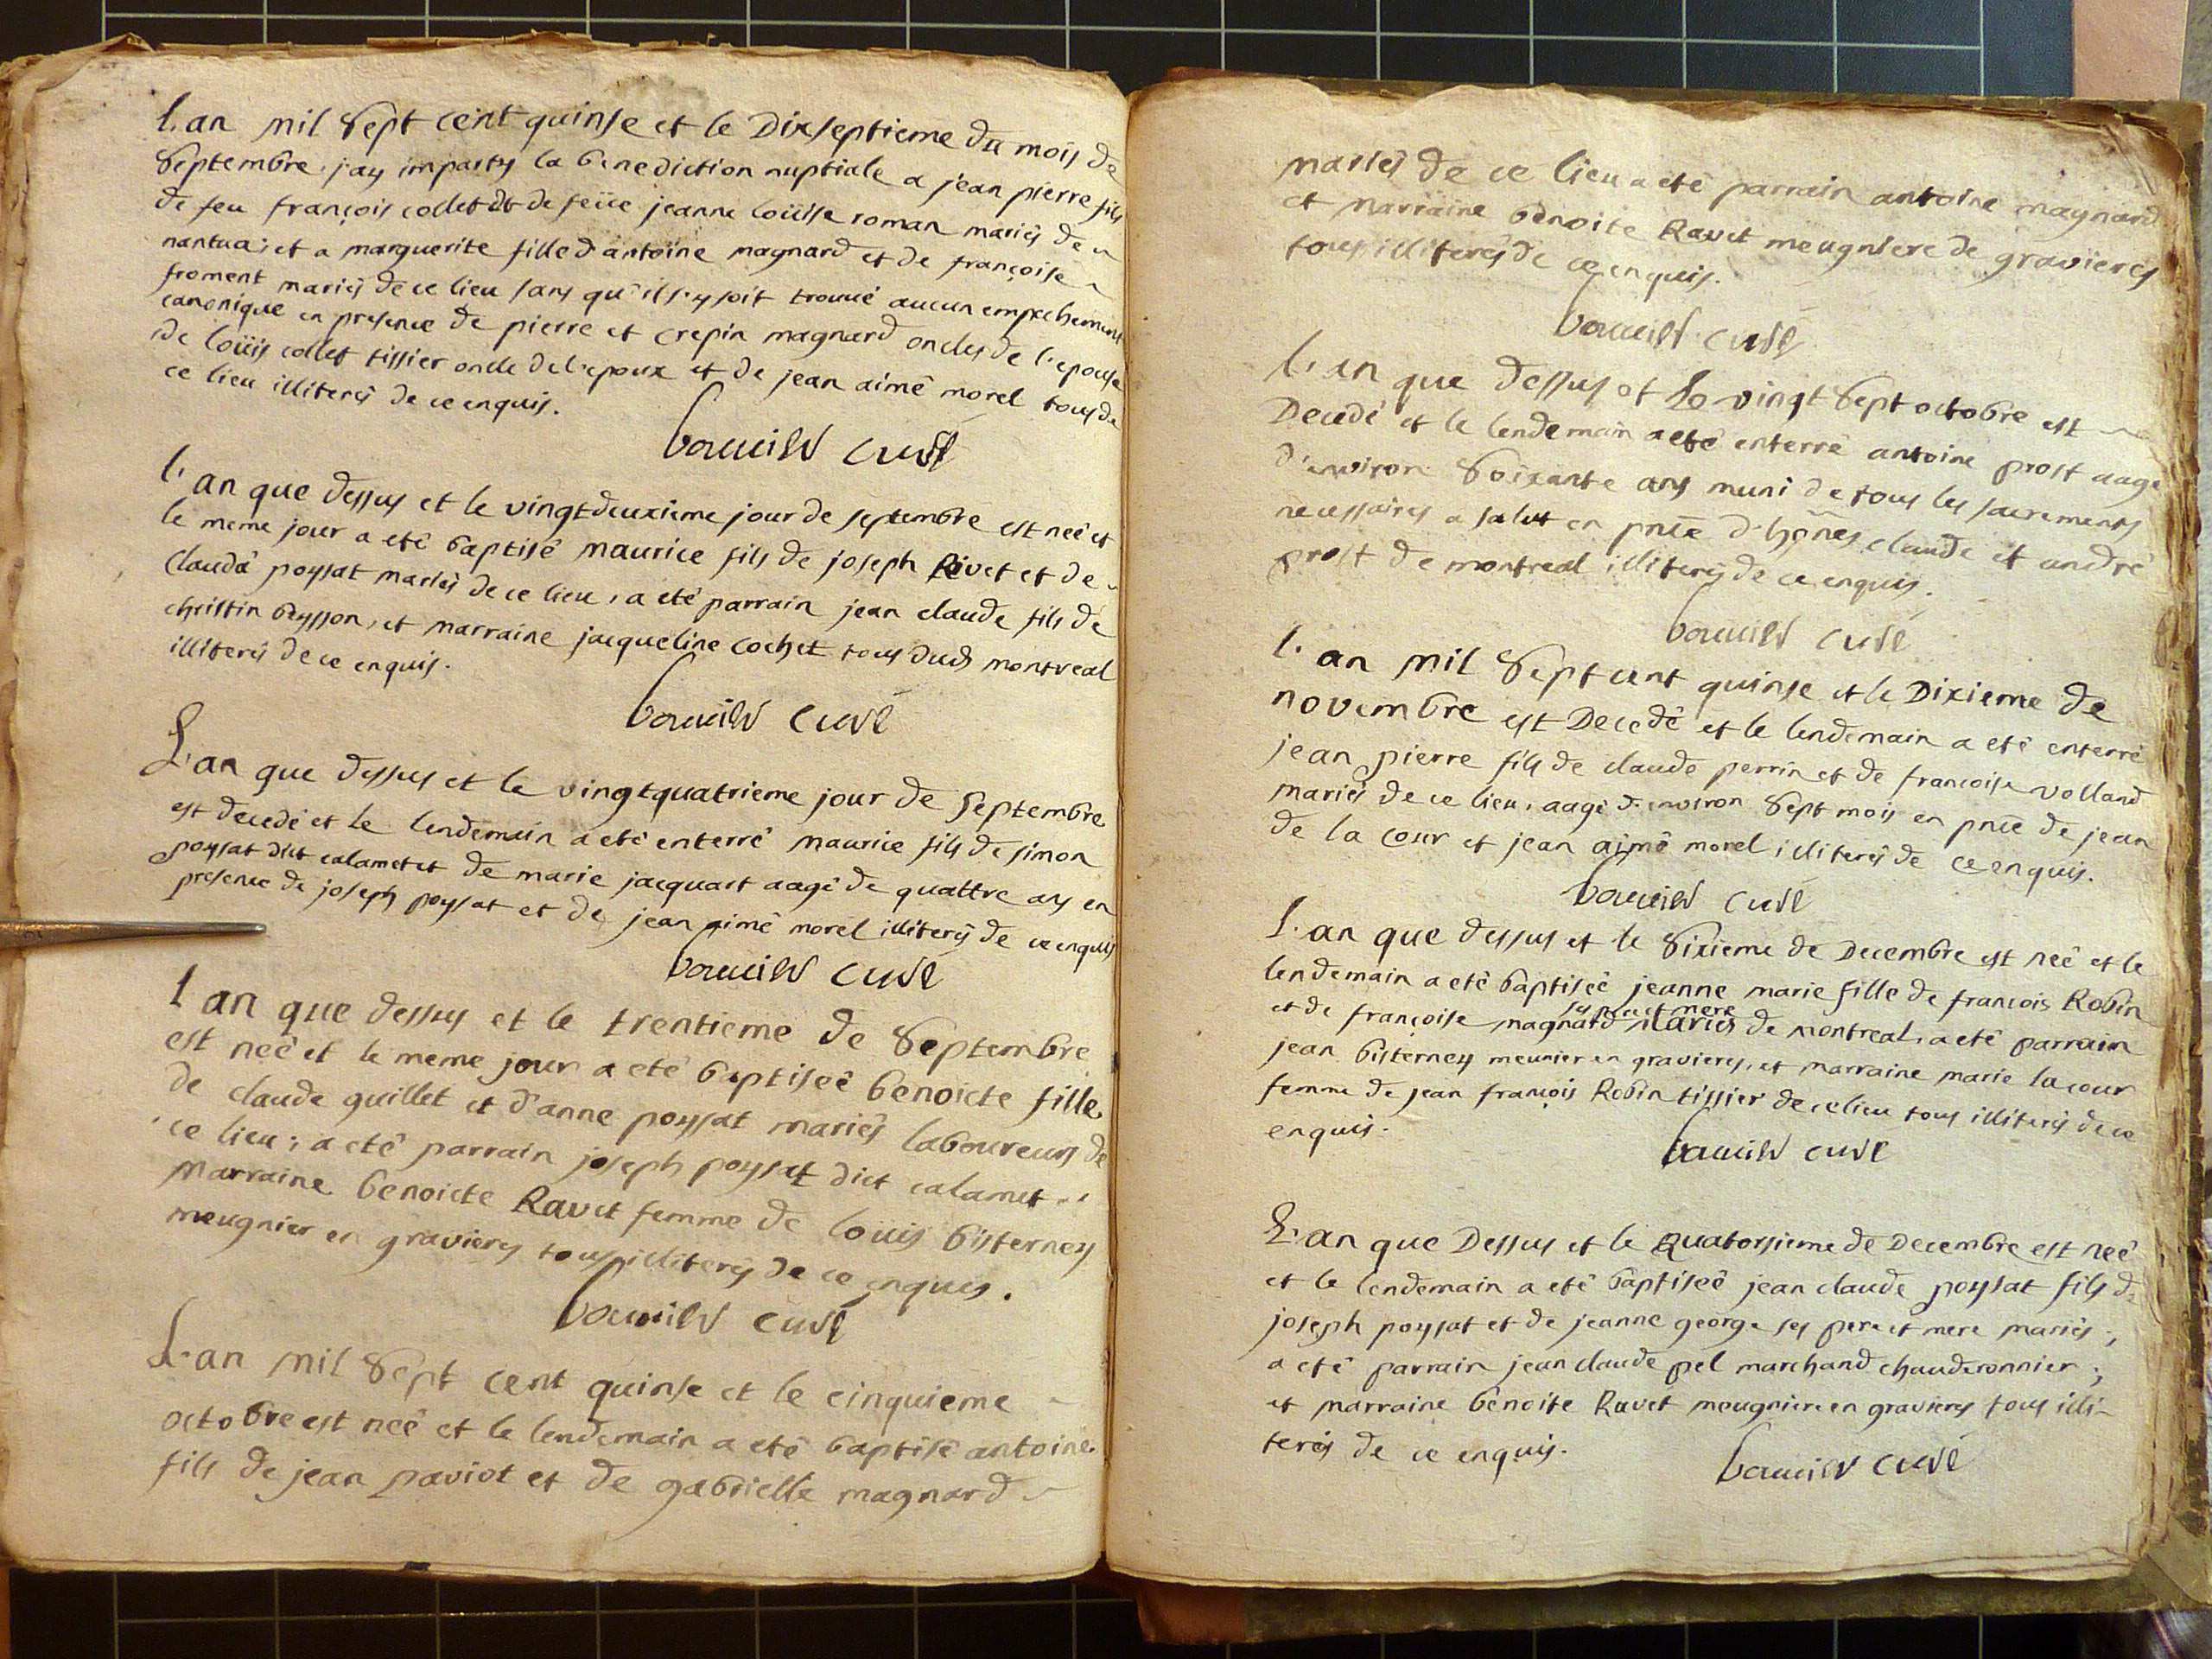 L'an mil sept cent quinse et le Dixseptieme du mois de
septembre j'ay imparty la benediction nuptiale a jean pierre fils
de feu françois collet et de feüe jeanne loüise roman mariés de
nantua; et a marguerite fille d'antoine magnard et de françoise
froment mariés de ce lieu sans qu'il s'y soit trouué aucun empechement
canonique en presence de pierre et crepin magnard oncles de l'epouse
de loüis collet tissier oncle de l'epoux et de jean aimé morel tous de
ce lieu illiterés de ce enquis.
curé
l'an que dessus et le vingtdeuxieme jour de septembre est neé et
le meme jour a eté baptisé maurice fils de joseph Rivet et de
Clauda poysat mariés de ce lieu, a eté parrain jean claude fils de
christin beysson, et marraine jacqueline cochet tous dud montreal
illiterés de ce enquis.
curé
L'an que dessus et le vingtquatrieme jour de septembre
est decedé et le lendemain a eté enterré maurice fils de simon
poysat dict calamet et de marie jacquart aagé de quattre ans en
presence de joseph poysat et de jean aimé morel illiterés de ce enquis
curé
l'an que dessus et le trentieme de septembre
est neé et le meme jour a eté baptiseé benoicte fille
de claude guillet et d'anne poysat mariés laboureurs de
ce lieu; a eté parrain joseph poysat dict calamet
marraine benoicte Ravet femme de loüis bisterney
meugnier en gravieres tous illiterés de ce enquis.
curé
L'an mil sept cent quinse et le cinquieme
octobre est neé et le lendemain a eté baptisé antoine
fils de jean paviot et de gabrielle magnard
mariés de ce lieu a eté parrain antoine magnard
et marraine benoite Ravet meugniere de gravieres
tous illiterés de ce enquis.
curé
l'an que dessus et Le vingt sept octobre est
Decedé et le lendemain a eté enterré antoine prost aagé
d'environ soixante ans muni de tous les sacrements
necessaires a salut en pnce d'hones claude et andré
prost de montreal illiterés de ce enquis.
curé
l'an mil sept cent quinse et le Dixieme de
novembre est Decedé et le lendemain a eté enterré
jean pierre fils de claude perrin et de francoise volland
mariés de ce lieu, aagé d'environ sept mois en pnce de jean
de la cour et jean aimé morel illiterés de ce enquis.
curé
L'an que dessus et le sixieme de Decembre est neé et le
lendemain a eté baptiseé jeanne marie fille de francois Robin
et de françoise magnard ses pere et mere mariés de montreal, a eté parrain
jean bisterney meunier en gravieres, et marraine marie lacour
femme de jean françois Robin tissier de ce lieu tous illiterés de ce
enquis.
curé
L'an que Dessus et le quatorsieme de Decembre est neé
et le lendemain a eté baptiseé jean claude poysat fils de
joseph poysat et de jeanne george ses pere et mere mariés;
a eté parrain jean claude pel marchand chauderonnier;
et marraine benoite Ravet meugniere en gravieres tous illi-
terés de ce enquis.
curé